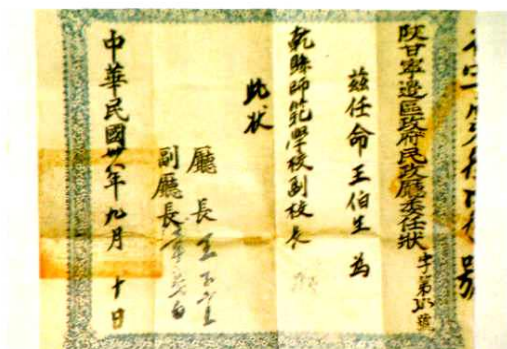 陝甘寧邊區政府民政廳委任狀
字第 號
茲任命王伯生為
乾縣師範學校副校長
此狀
廳長王子宜
副廳長
中華民國卅 年九月 十日
號